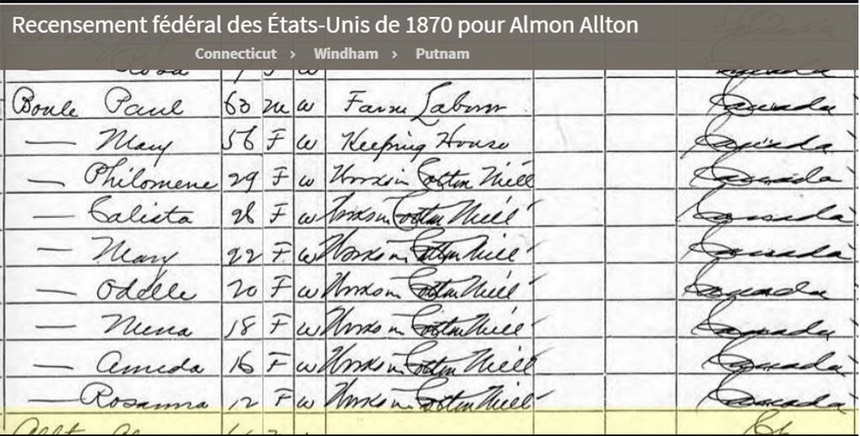 Recensement fédéral des États-Unis de 1870 pour Almon Allton
Connecticut › Windham › Putnam
Rosa
Boule Paul 60 m w Farm Laborer Canada
— Mary 56 F w Keeping House Canada
— Philomene 29 F w Works in Cotton Mill Canada
— Calista 26 F w Works in Cotton Mill Canada
— Mary 22 F w Works in Cotton Mill Canada
— Odelle 20 F w Works in Cotton Mill Canada
— 18 F w Works in Cotton Mill Canada
— Ameda 16 F w Works in Cotton Mill Canada
— Rosanna 12 F w Works in Cotton Mill Canada